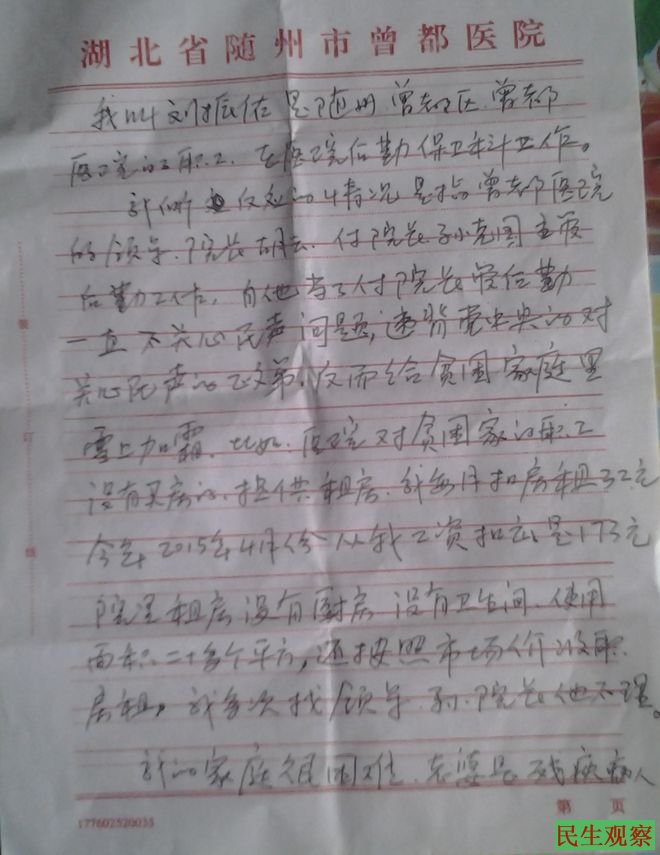 湖北省随州市曾都医院
我叫刘振佐是随州曾都区.曾都
医院的职工.在医院后勤保卫科工作。
我所反应的情况是指曾都医院
的领导.院长胡云.付院长孙克国主管
后勤工作.自他当了付院长管后勤
一直不关心民声问题,违背党中央的对
关心民声的政策.反而给贫困家庭里
雪上加霜.比如.医院对贫困家的职工
没有买房的.提供租房.我每月扣房租32元
今年2015年4月份从我工资扣款是173元
院里租房没有厨房没有卫生间.使用
面积二十多个平方,还按照市场价收取
房租,我多次找领导.孙院长他不理。
我的家庭很困难.老婆是残疾病人
177602520035
第 页
民生观察